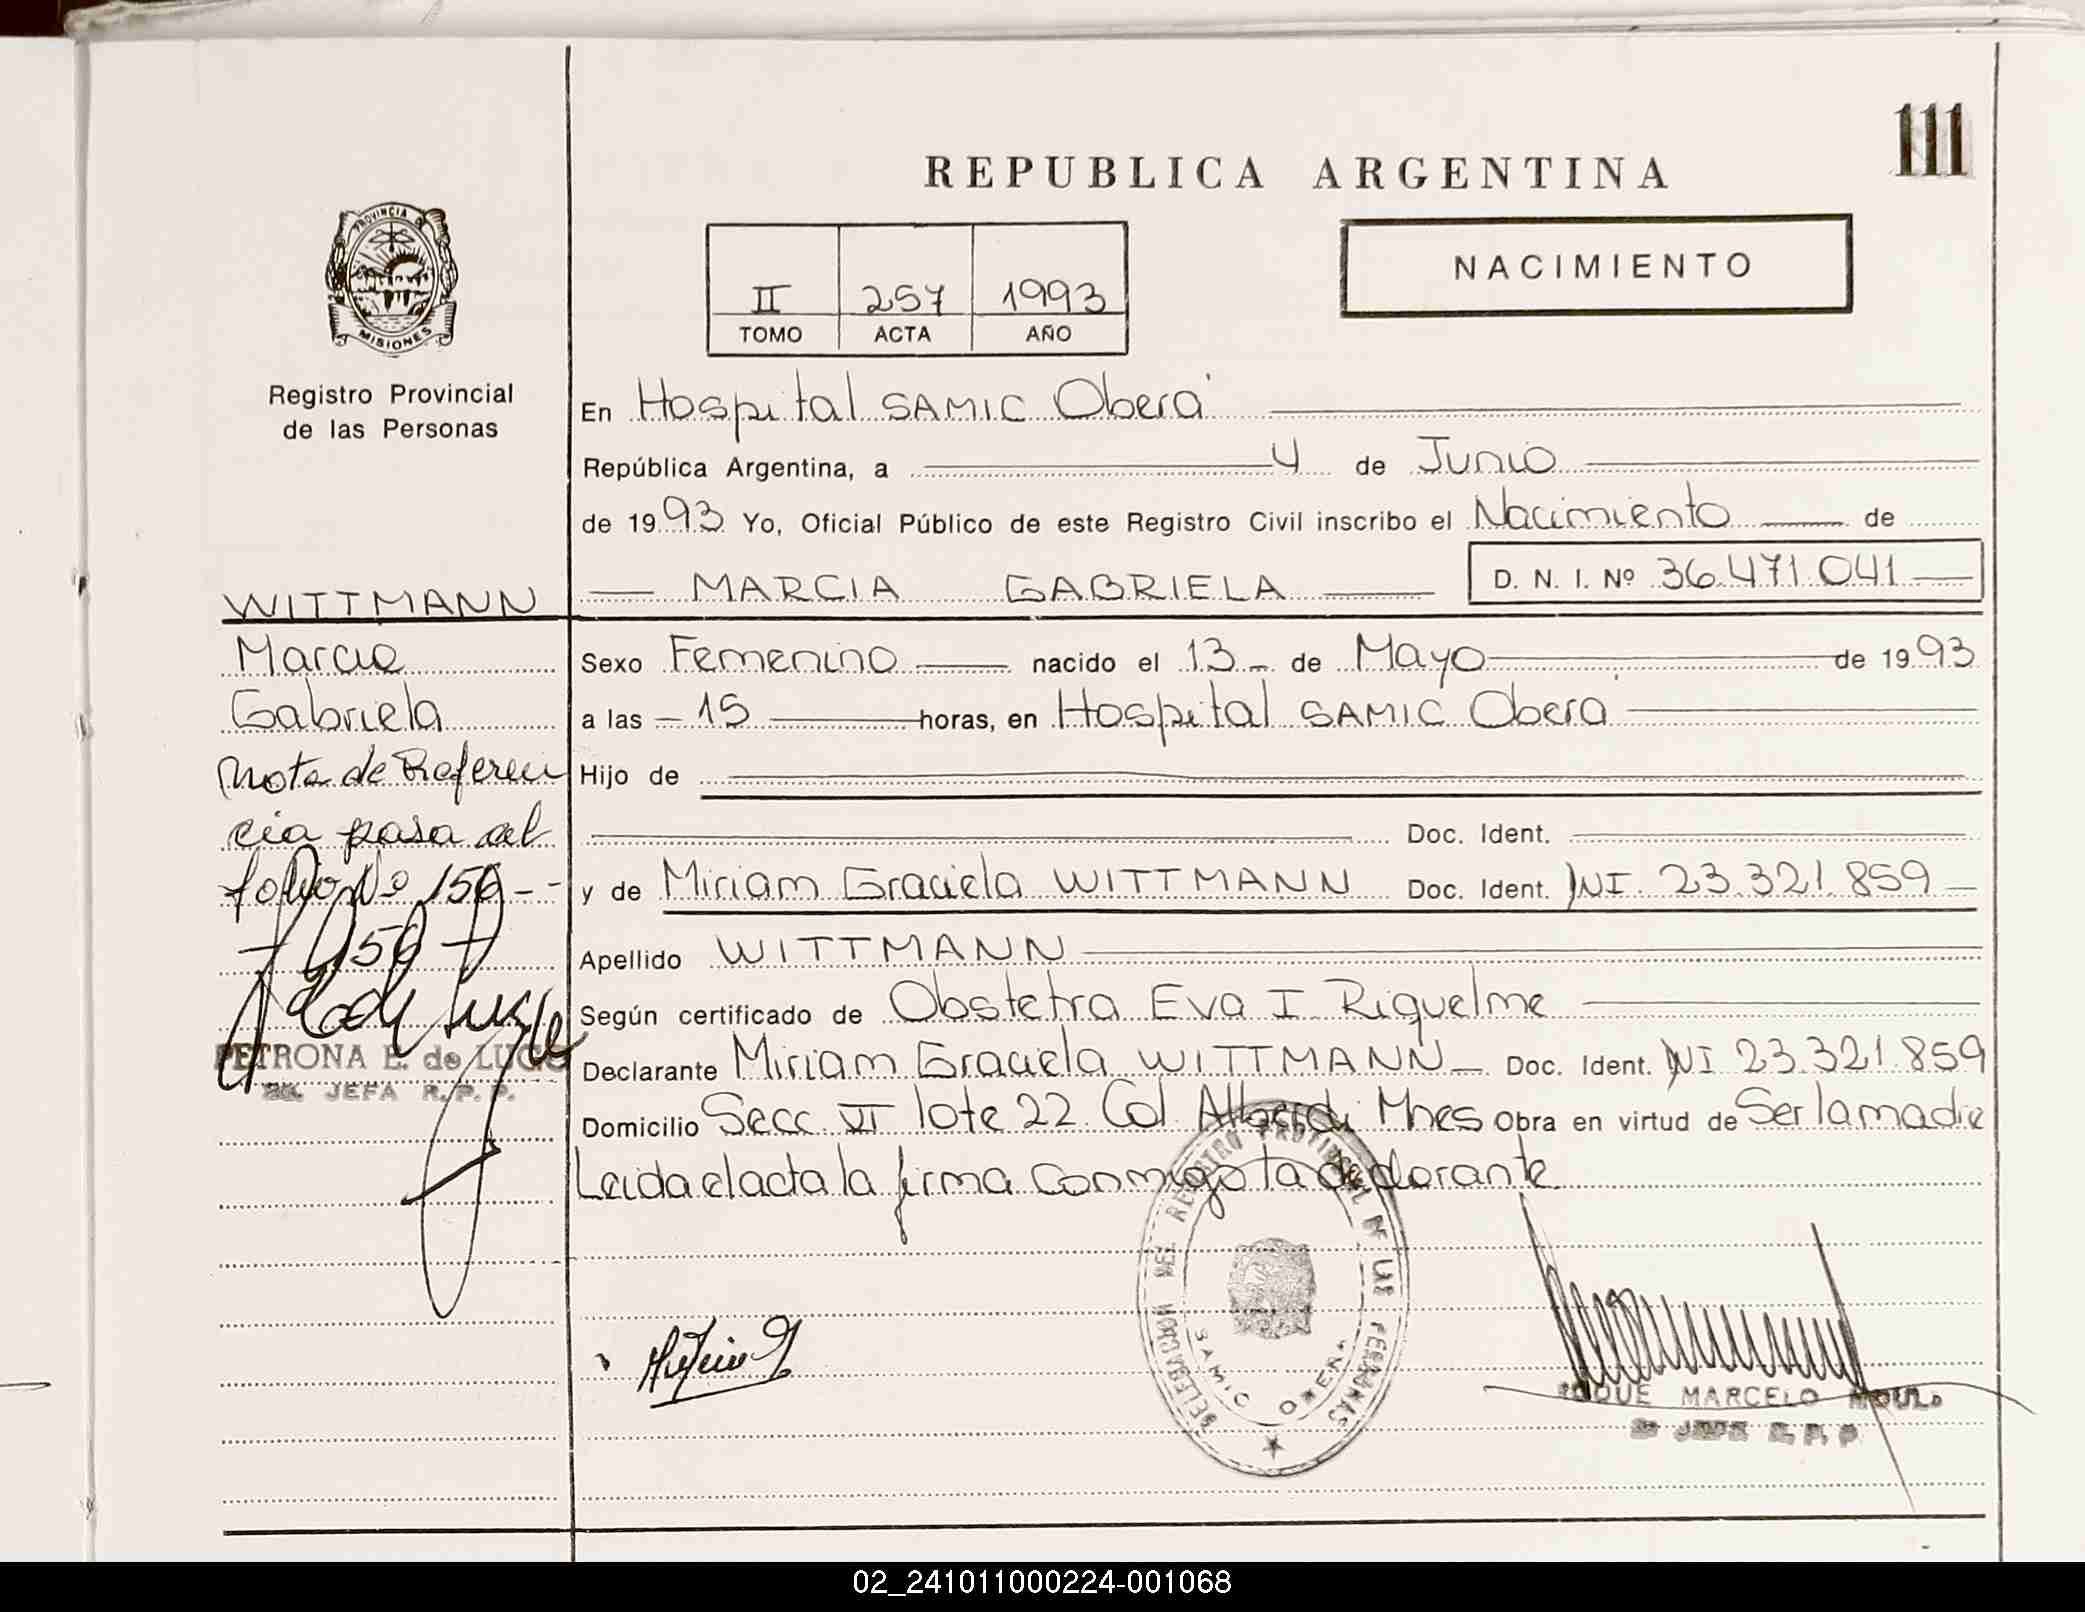 111
REPUBLICA ARGENTINA
NACIMIENTO
II 257 1993
TOMO ACTA AÑO
PROVINCIA D
MISIONES
Registro Provincial
de las Personas
En Hospital SAMIC Oberá
República Argentina, a 4 de Junio
de 1993 Yo, Oficial Público de este Registro Civil inscribo el Nacimiento de
MARCIA GABRIELA D. N. I. Nº 36.471.041
WITTMANN
Marcia
Gabriela
Nota de Referen
cia pasa al
folio Nº 156--
PETRONA E. de LUGO
JEFA R. P. P.
Sexo Femenino nacido el 13 de Mayo de 1993
a las 15 horas, en Hospital SAMIC Oberá
Hijo de
Doc. Ident.
y de Miriam Graciela WITTMANN Doc. Ident. NI 23.321.859
Apellido WITTMANN
Según certificado de Obstetra Eva I Riquelme
Declarante Miriam Graciela WITTMANN Doc. Ident. NI 23.321.859
Domicilio Secc. VI lote 22 Col Alberdi Mnes Obra en virtud de Ser la madre
Leida el acta la firma conmigo la declarante
DELEGACION DEL REGISTRO PROVINCIAL DE LAS PERSONAS
SAMIC OBERA
ROQUE MARCELO
JEFE R. P. P.
02_241011000224-001068